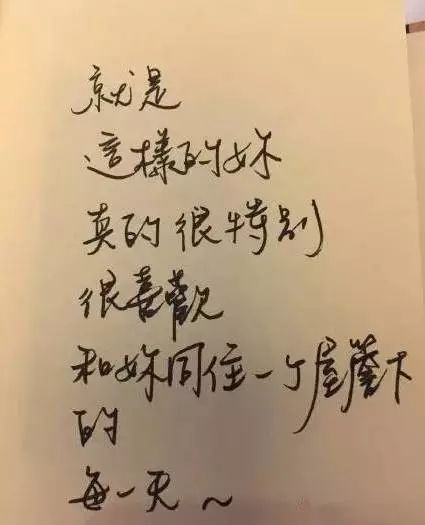 就是
這樣的妳
真的很特别
很喜觀
和妳同住一个屋簷下
的
每一天～